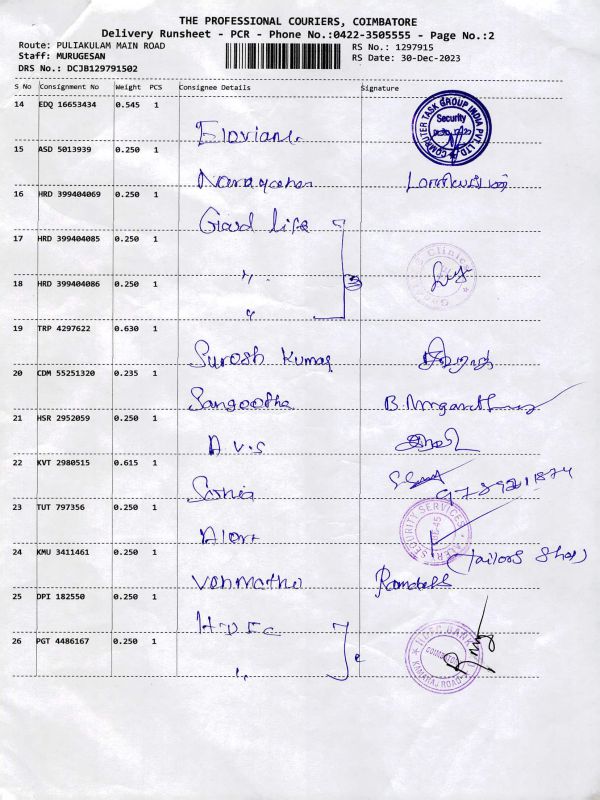 THE PROFESSIONAL COURIERS, COIMBATORE
Delivery Runsheet - PCR - Phone No.:0422-3505555 - Page No.:2
Route: PULIAKULAM MAIN ROAD
RS No.: 1297915
Staff: MURUGESAN
RS Date: 30-Dec-2023
DRS No.: DCJB129791502
S No Consignment No Weight PCS Consignee Details Signature
14 EDQ 16653434 0.545 1
COMPUTER TASK GROUP INDIA PVT. LTD
Security
15 ASD 5013939 0.250 1
16 HRD 399404069 0.250 1
Good life
17 HRD 399404085 0.250 1
Clinics
18 HRD 399404086 0.250 1
3
19 TRP 4297622 0.630 1
Suresh Kumar
20 CDM 55251320 0.235 1
Sangeetha
21 HSR 2952059 0.250 1
A v.s
22 KVT 2980515 0.615 1
Sonia
23 TUT 797356 0.250 1
Alert
SECURITY SERVICES
24 KMU 3411461 0.250 1
(Tailors Shop)
25 DPI 182550 0.250 1
HDFC
26 PGT 4486167 0.250 1
HDFC BANK
KAMARAJ ROAD